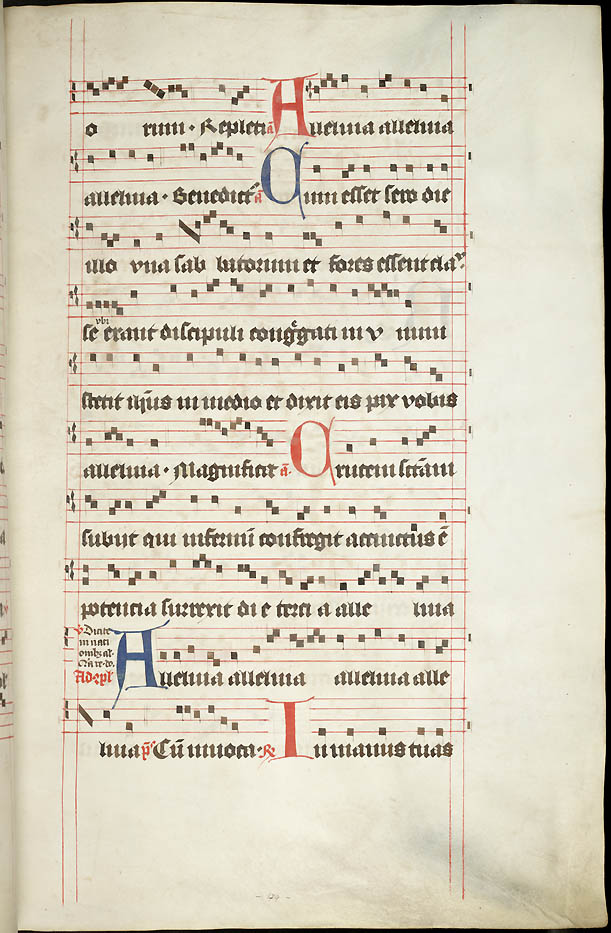 o rum · Repleti a Alleluia alleluia
alleluia · Benedict' a Cum esset sero die
illo vna sab batorum et fores essent cla
se vbi erant discipuli cong̃gati in v num
stetit ih̃us in medio et dixit eis pax vobis
alleluia · Magnificat a. Crucem sc̃tam
subijt qui infernũ confregit accinctus ẽ
potencia surrexit di e terci a alle luia
v Dicite
in nati
onibꝫ al.
Ad cpl
Alleluia alleluia alleluia alle
luia ps Cũ inuoca · R In manus tuas